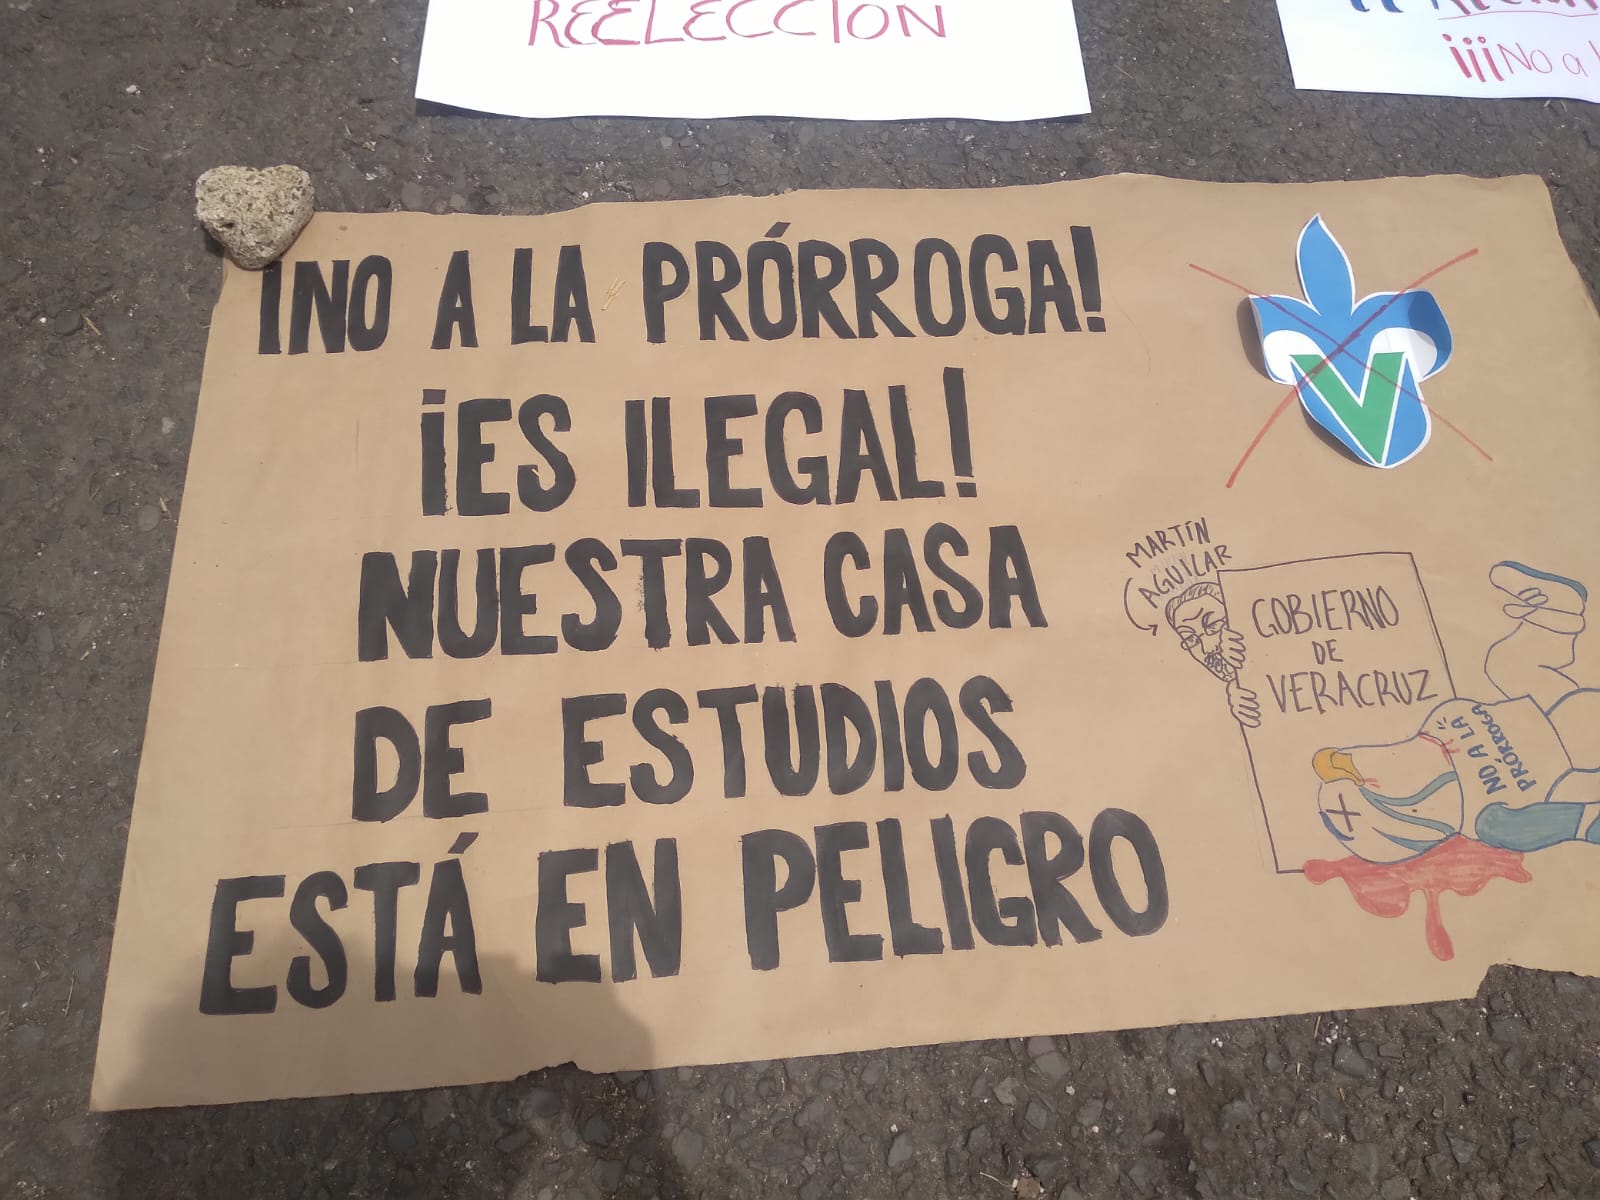 REELECCION
¡¡¡No a
¡NO A LA PRÓRROGA!
¡ES ILEGAL!
NUESTRA CASA
DE ESTUDIOS
ESTÁ EN PELIGRO
V
MARTÍN
AGUILAR
GOBIERNO
DE
VERACRUZ
NO A LA
PRÓRROGA